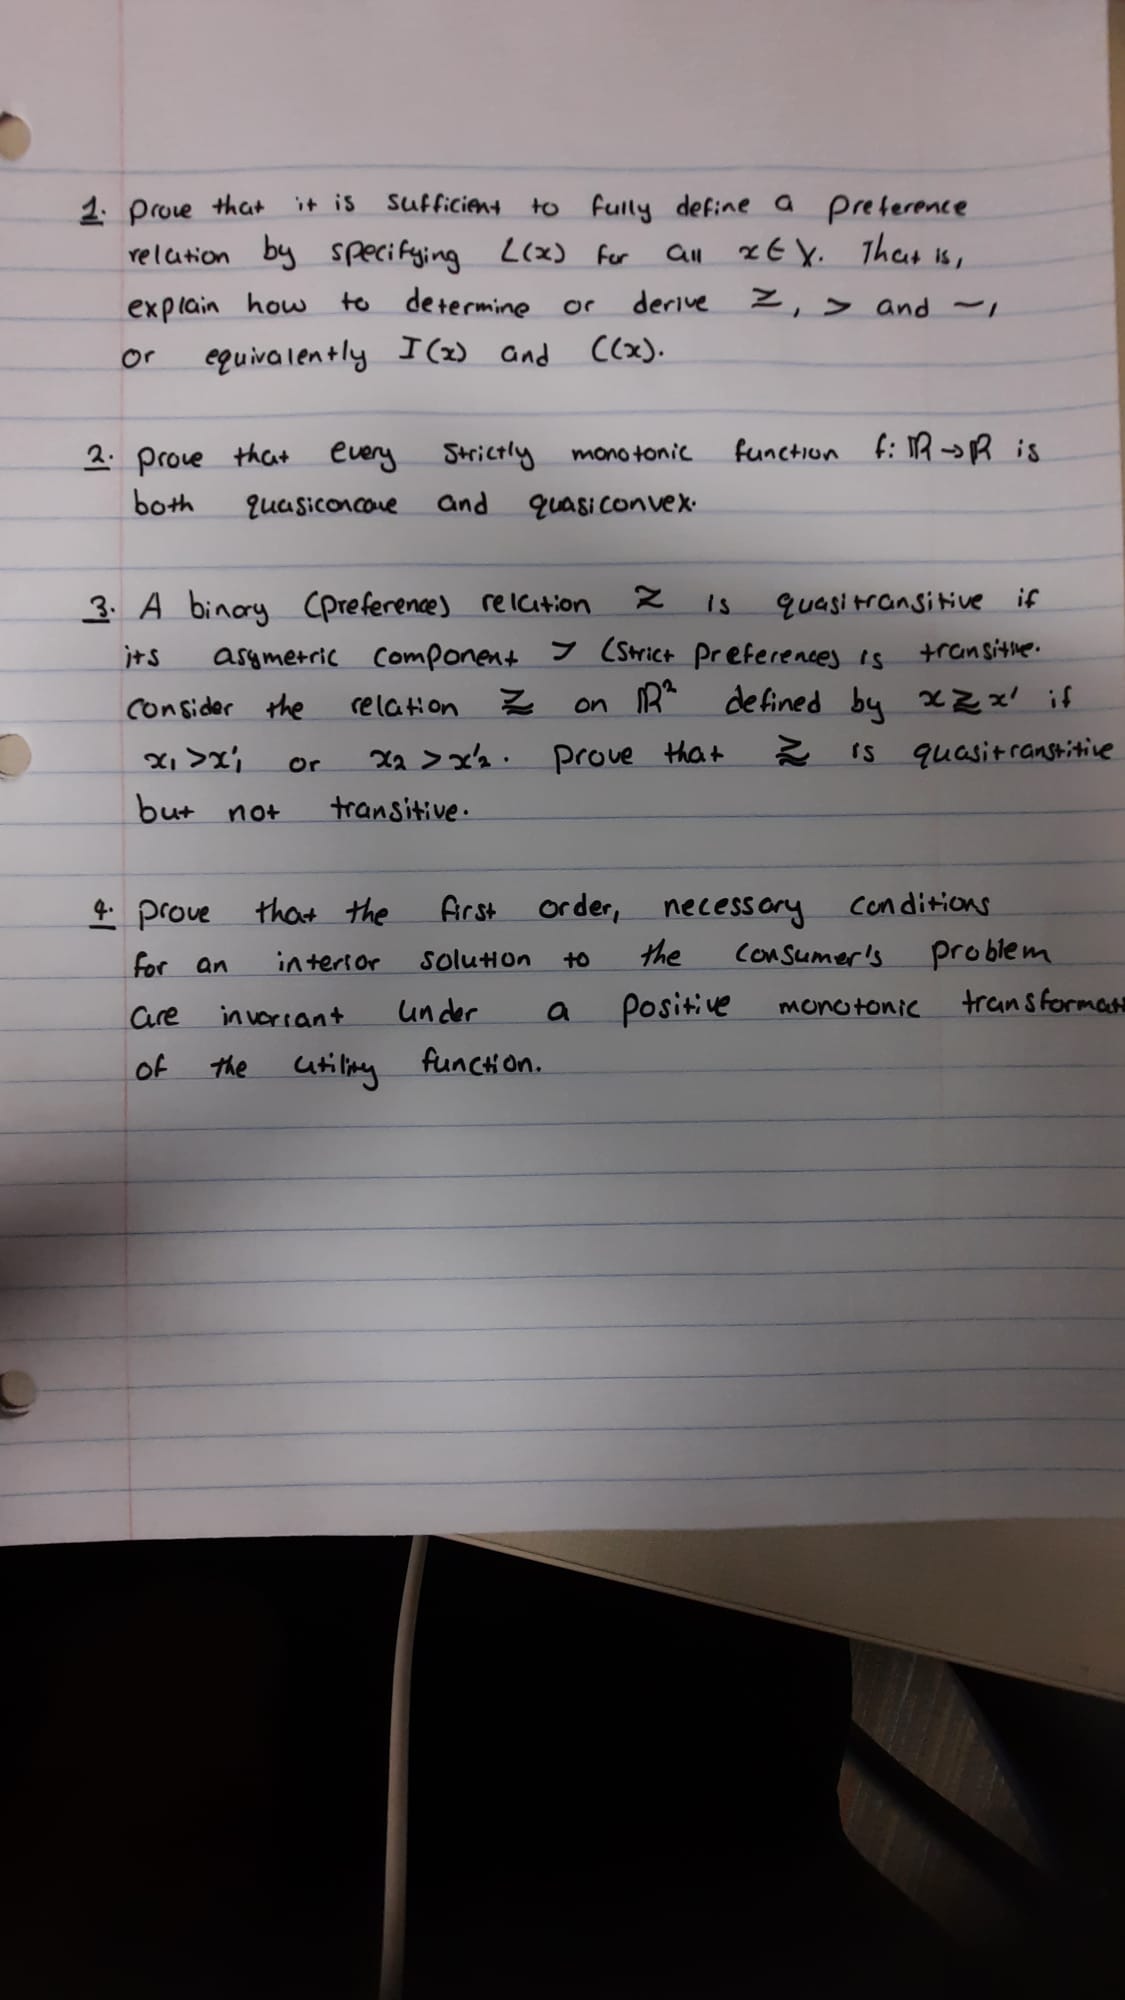 1. prove that it is sufficient to fully define a preference
relation by specifying L(x) for all x ∈ X. That is,
explain how to determine or derive ≿, > and ~,
or equivalently I(x) and C(x).
2. prove that every strictly monotonic function f: ℝ→ℝ is
both quasiconcave and quasiconvex.
3. A binary (preference) relation ≿ is quasitransitive if
its asymetric component > (strict preferences is transitive.
consider the relation ≿ on ℝ² defined by x ≿ x' if
x₁ > x'₁ or x₂ > x'₂. prove that ≿ is quasitranstitive
but not transitive.
4. prove that the first order, necessary conditions
for an interior solution to the consumer's problem
are invariant under a positive monotonic transformat
of the utility function.